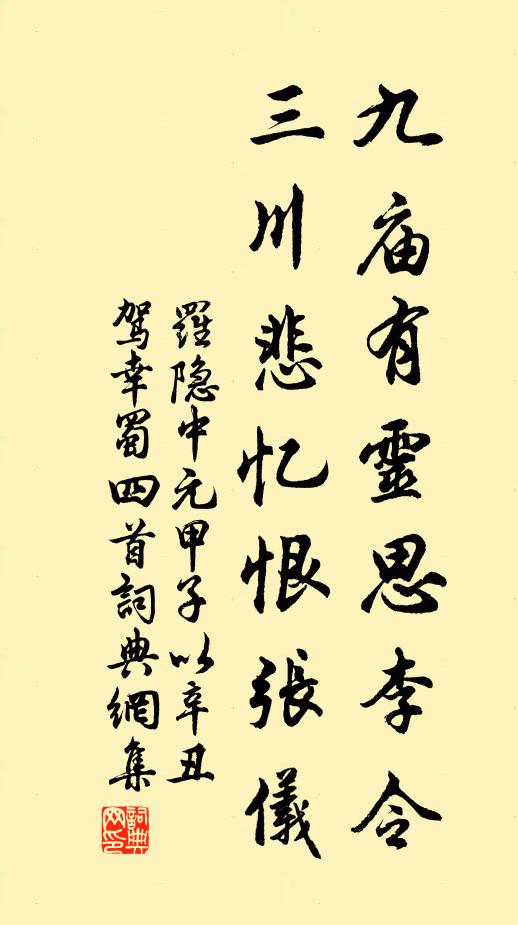 九庙有靈思李令
三川悲忆恨張儀
羅隐中元甲子以辛丑
驾幸蜀四首詞典網集
詞典网印